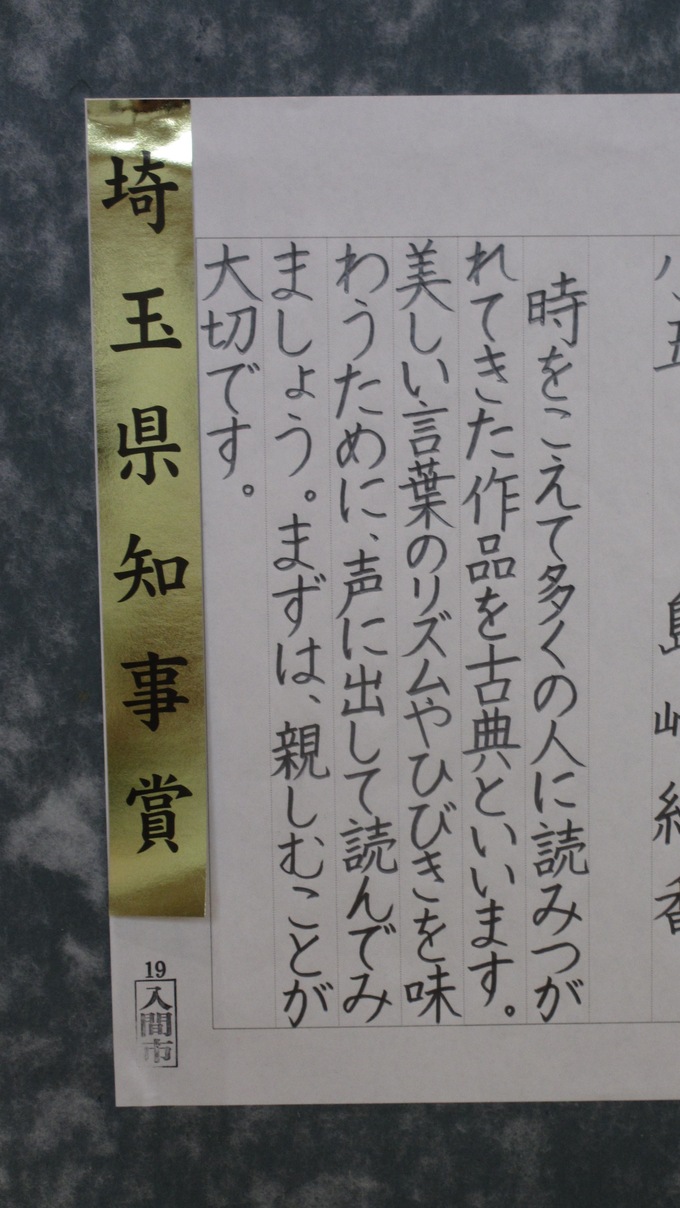 時をこえて多くの人に読みつが
れてきた作品を古典といいます。
美しい言葉のリズムやひびきを味
わうために、声に出して読んでみ
ましょう。まずは、親しむことが
大切です。
埼玉県知事賞
19
入間市